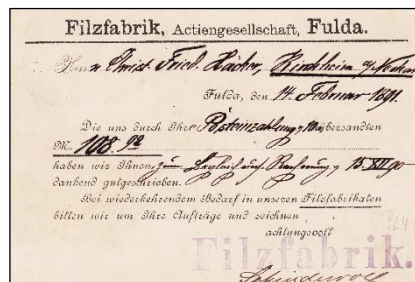 Filzfabrik, Actiengesellschaft, Fulda.
Herrn Christ. Fried. Bücher, Kirchheim a/Neckar
Fulda, den 14. Februar 1891.
Die uns durch Ihre Posteinzahlung übersandten
M. 108.
haben wir Ihnen zum Ausgleich uns. Rechnung v. 15 XII 90
dankend gutgeschrieben.
Bei wiederkehrendem Bedarf in unseren Filzfabrikaten
bitten wir um Ihre Aufträge und zeichnen
achtungsvoll
Filzfabrik.